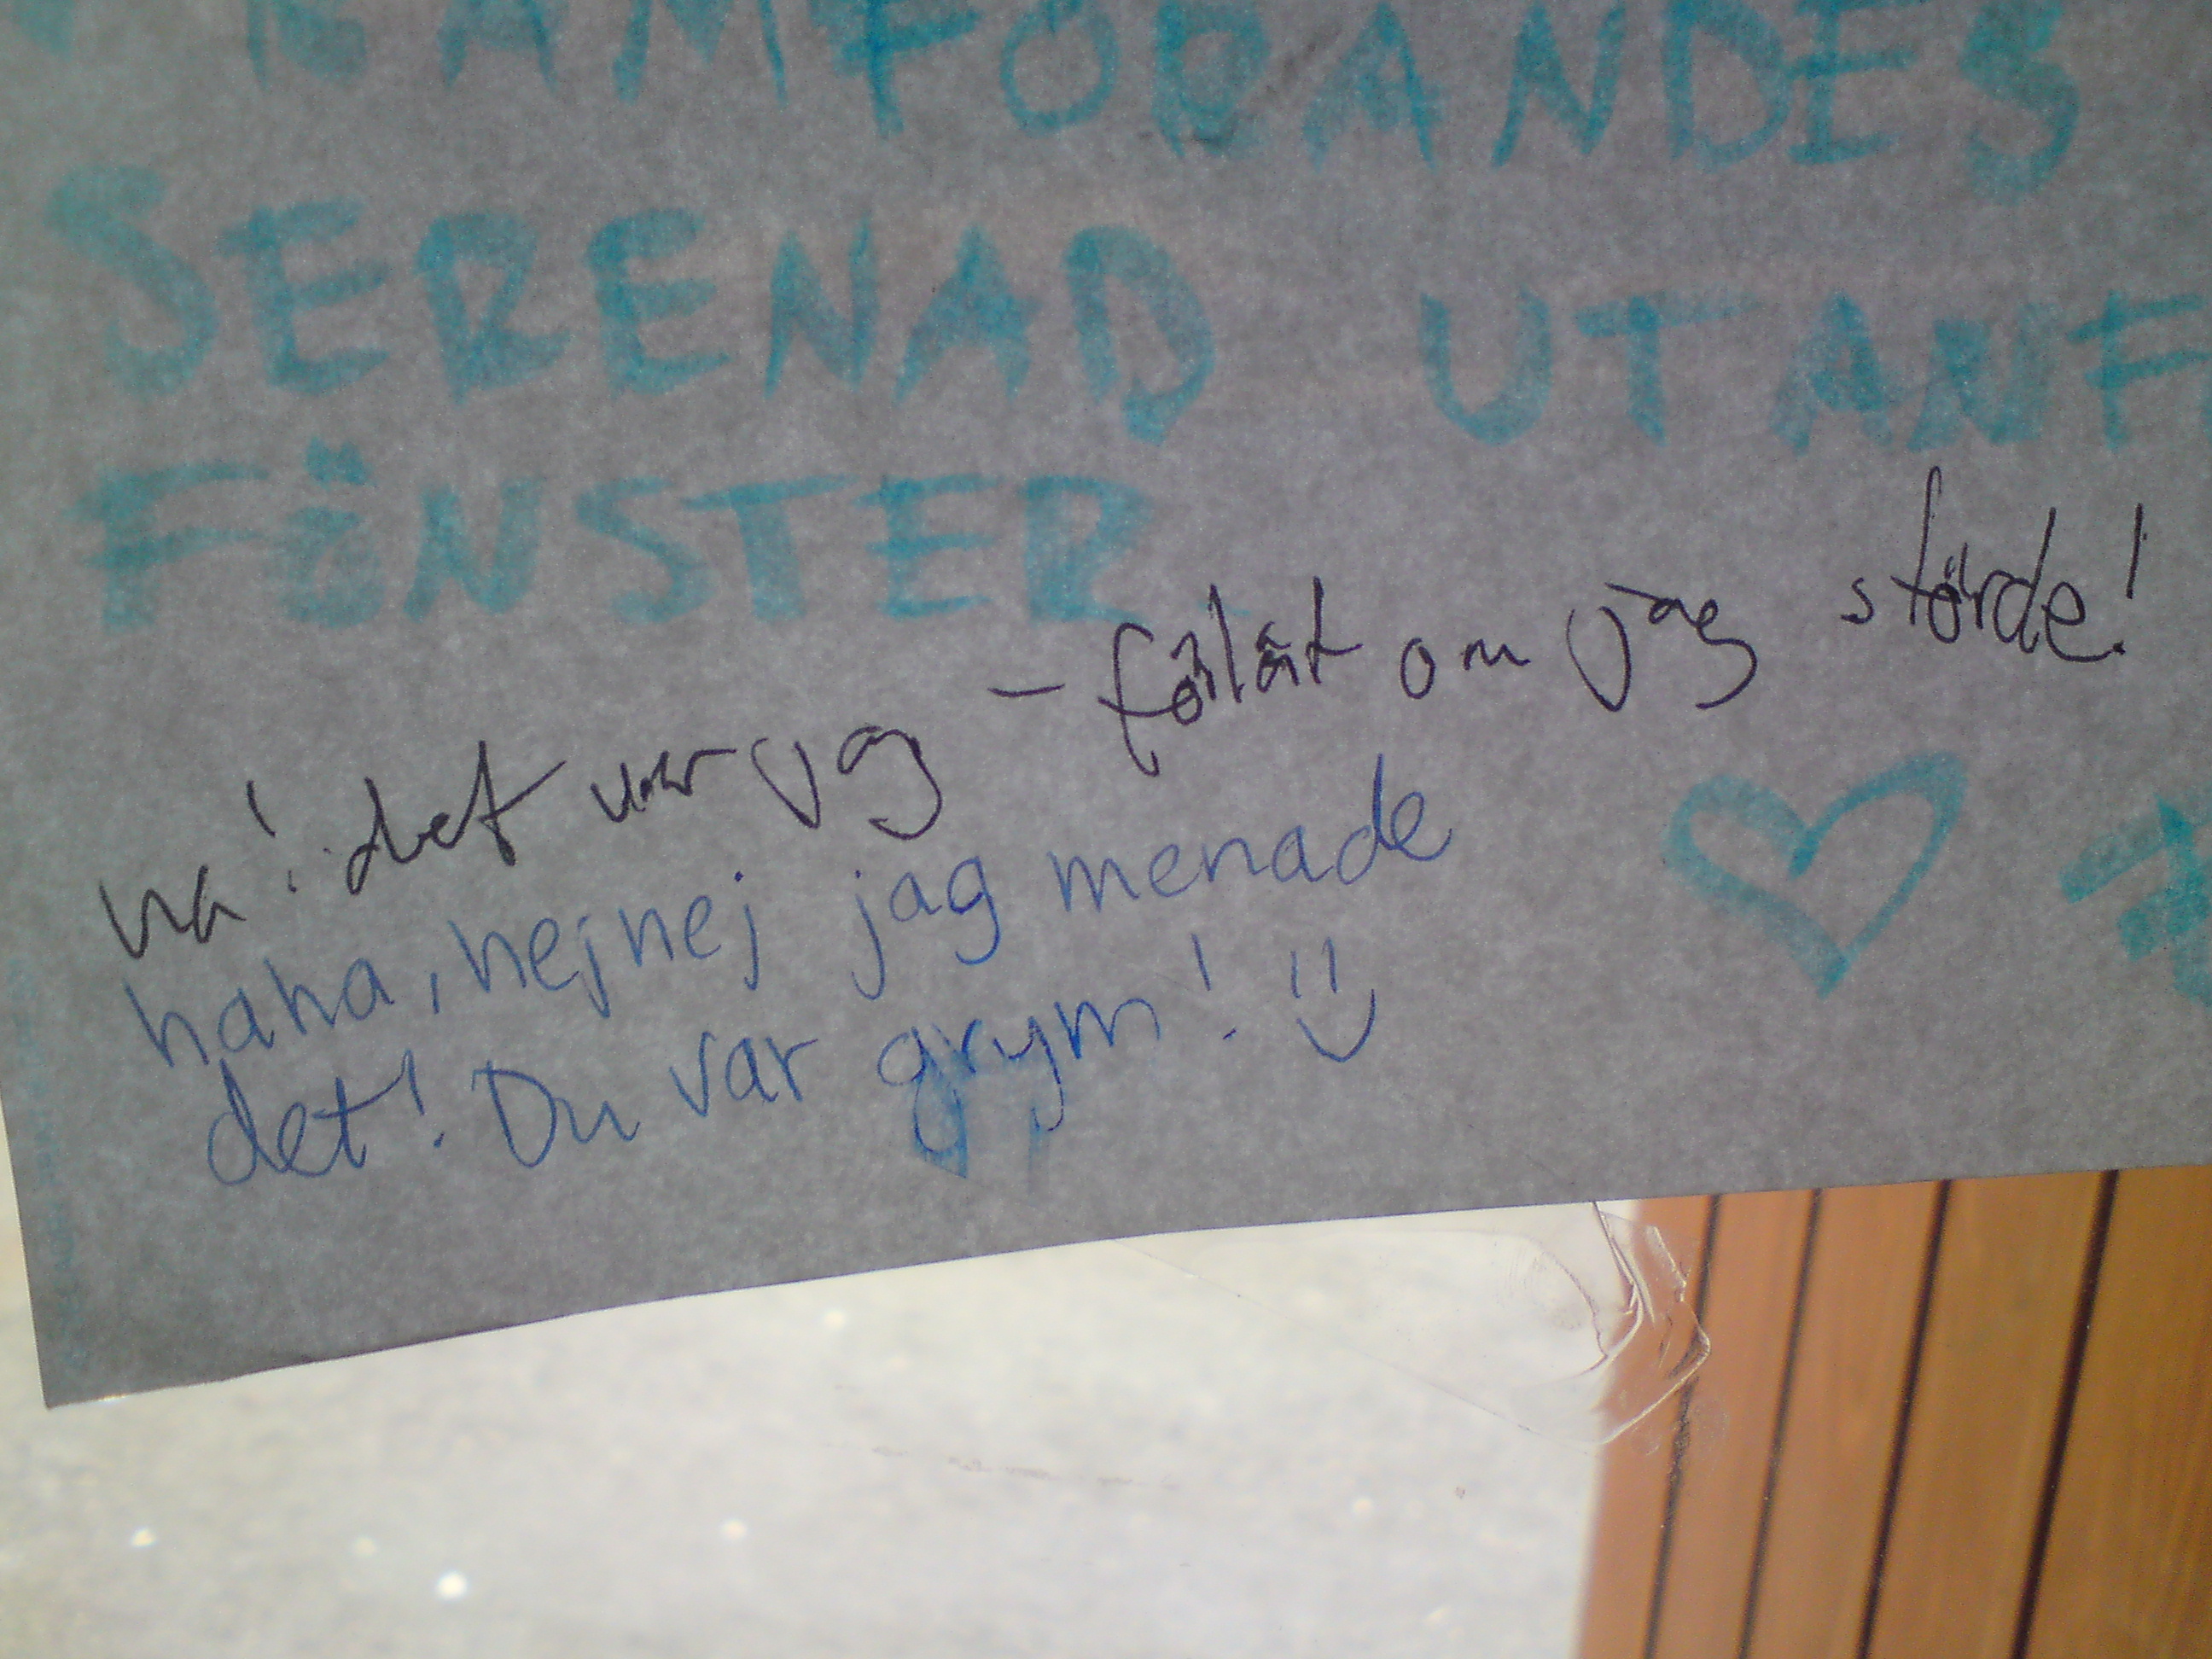 RAMFÖRANDES
SERENAD UTANF
FÖNSTER
ha! det var jag - förlåt om jag störde!
haha, nejnej jag menade
det! Du var grym! :)